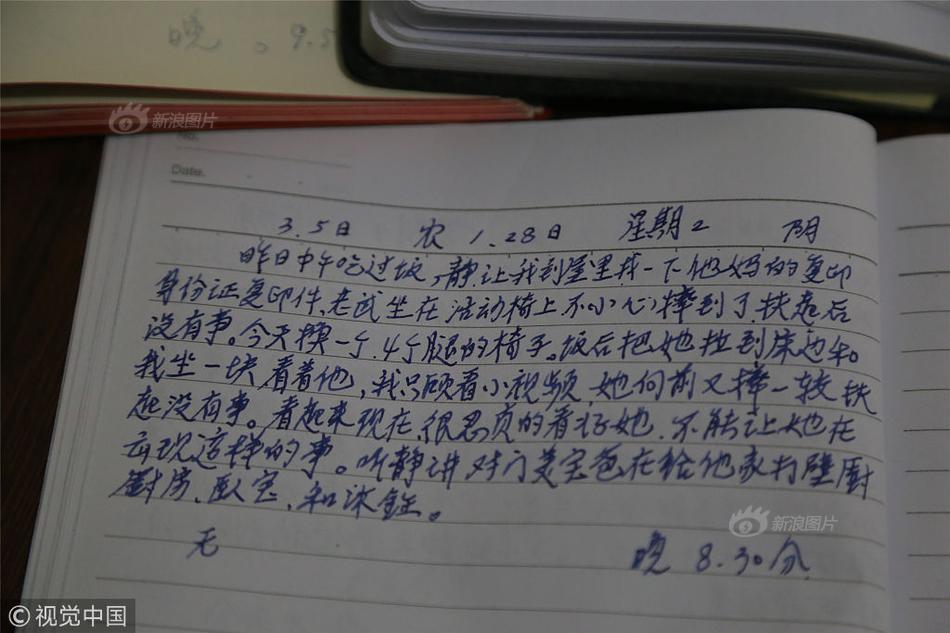 晚 。9.5
新浪图片
No.
Date.
3.5日 农 1.28日 星期2 阴
昨日中午吃过饭,静让我到屋里找一下他妈的复印
身份证复印件,老武坐在活动椅上不小心摔到了,扶起后
没有事。今天换一个,4个腿的椅子。饭后把她拉到床边和
我坐一块看着他,我只顾看小视频,她向前又摔一跤,扶
起没有事。看起来现在,很认真的看好她,不能让她在
云现这样的事。听静讲对门美宝爸在给他家打壁厨
厨房、卧室、和
无 晚 8.30分
新浪图片
© 视觉中国